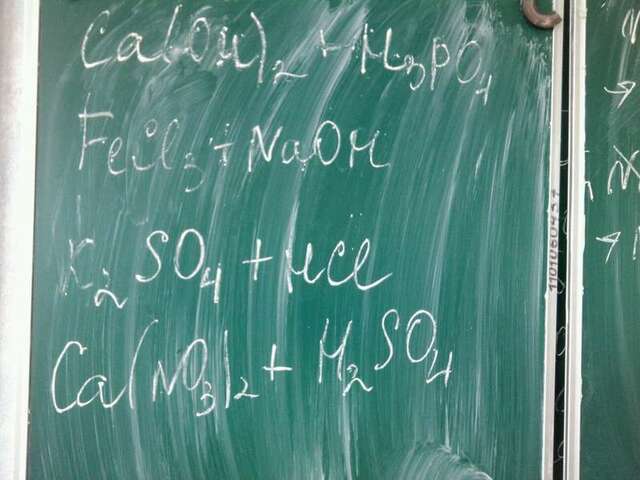 Ca(OH)₂ + H₃PO₄
FeCl₃ + NaOH
K₂SO₄ + HCl
Ca(NO₃)₂ + H₂SO₄
1101060431